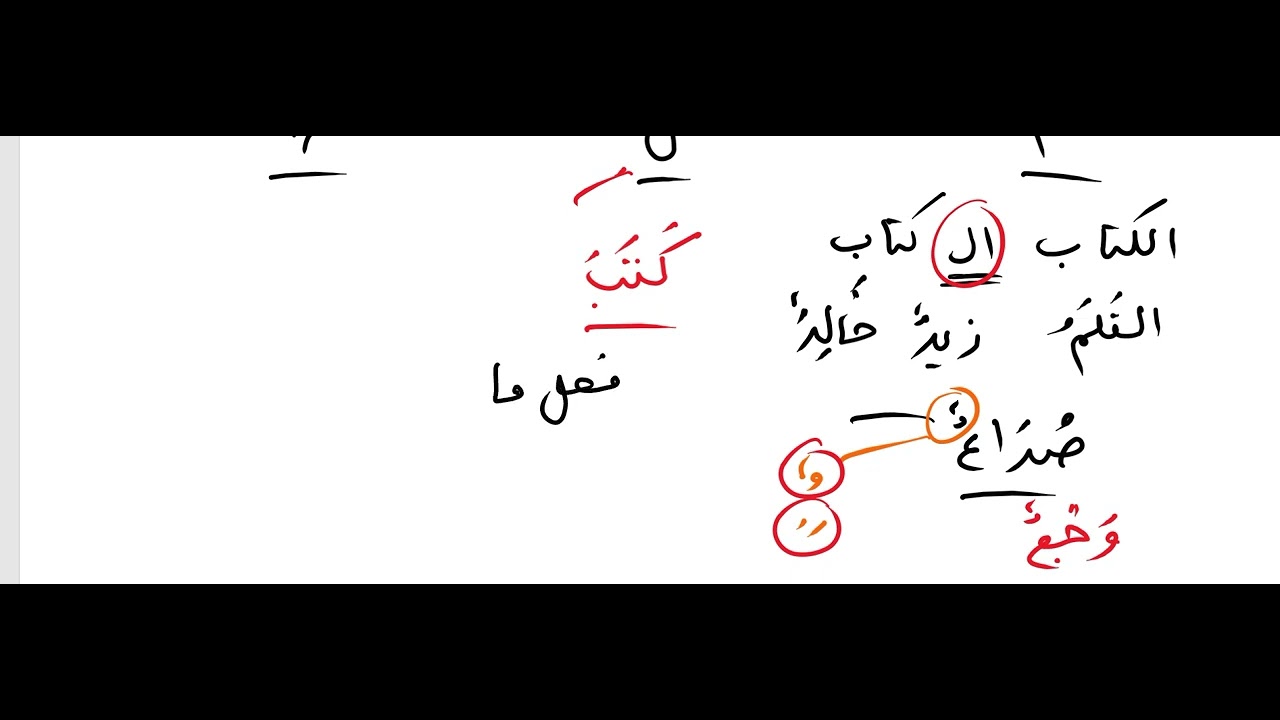 الكتاب ال كتاب
القَلَمُ زيدٌ خَالِدٌ
صُدَاعٌ
كَتَبَ
فعل ما